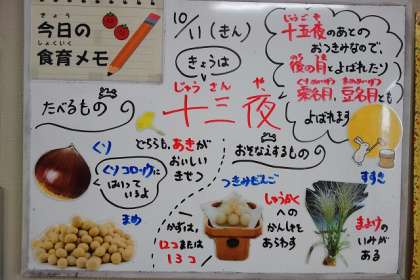 きょう
今日の
しょくいく
食育メモ
10/11(きん)
きょうは
じゅうさんや
十三夜
じゅうごや
十五夜のあとの
おつきみなので、
後の月とよばれたり
くりめいげつ まめめいげつ
栗名月、豆名月とも
よばれます
たべるもの
くり
どちらも、あきが
おいしい
きせつ
くりコロッケに
はいって
いるよ
まめ
おそなえするもの
つきみだんご
しゅうかく
への
かんしゃを
あらわす
かずは、
12こまたは
13こ
すすき
まよけの
いみが
ある